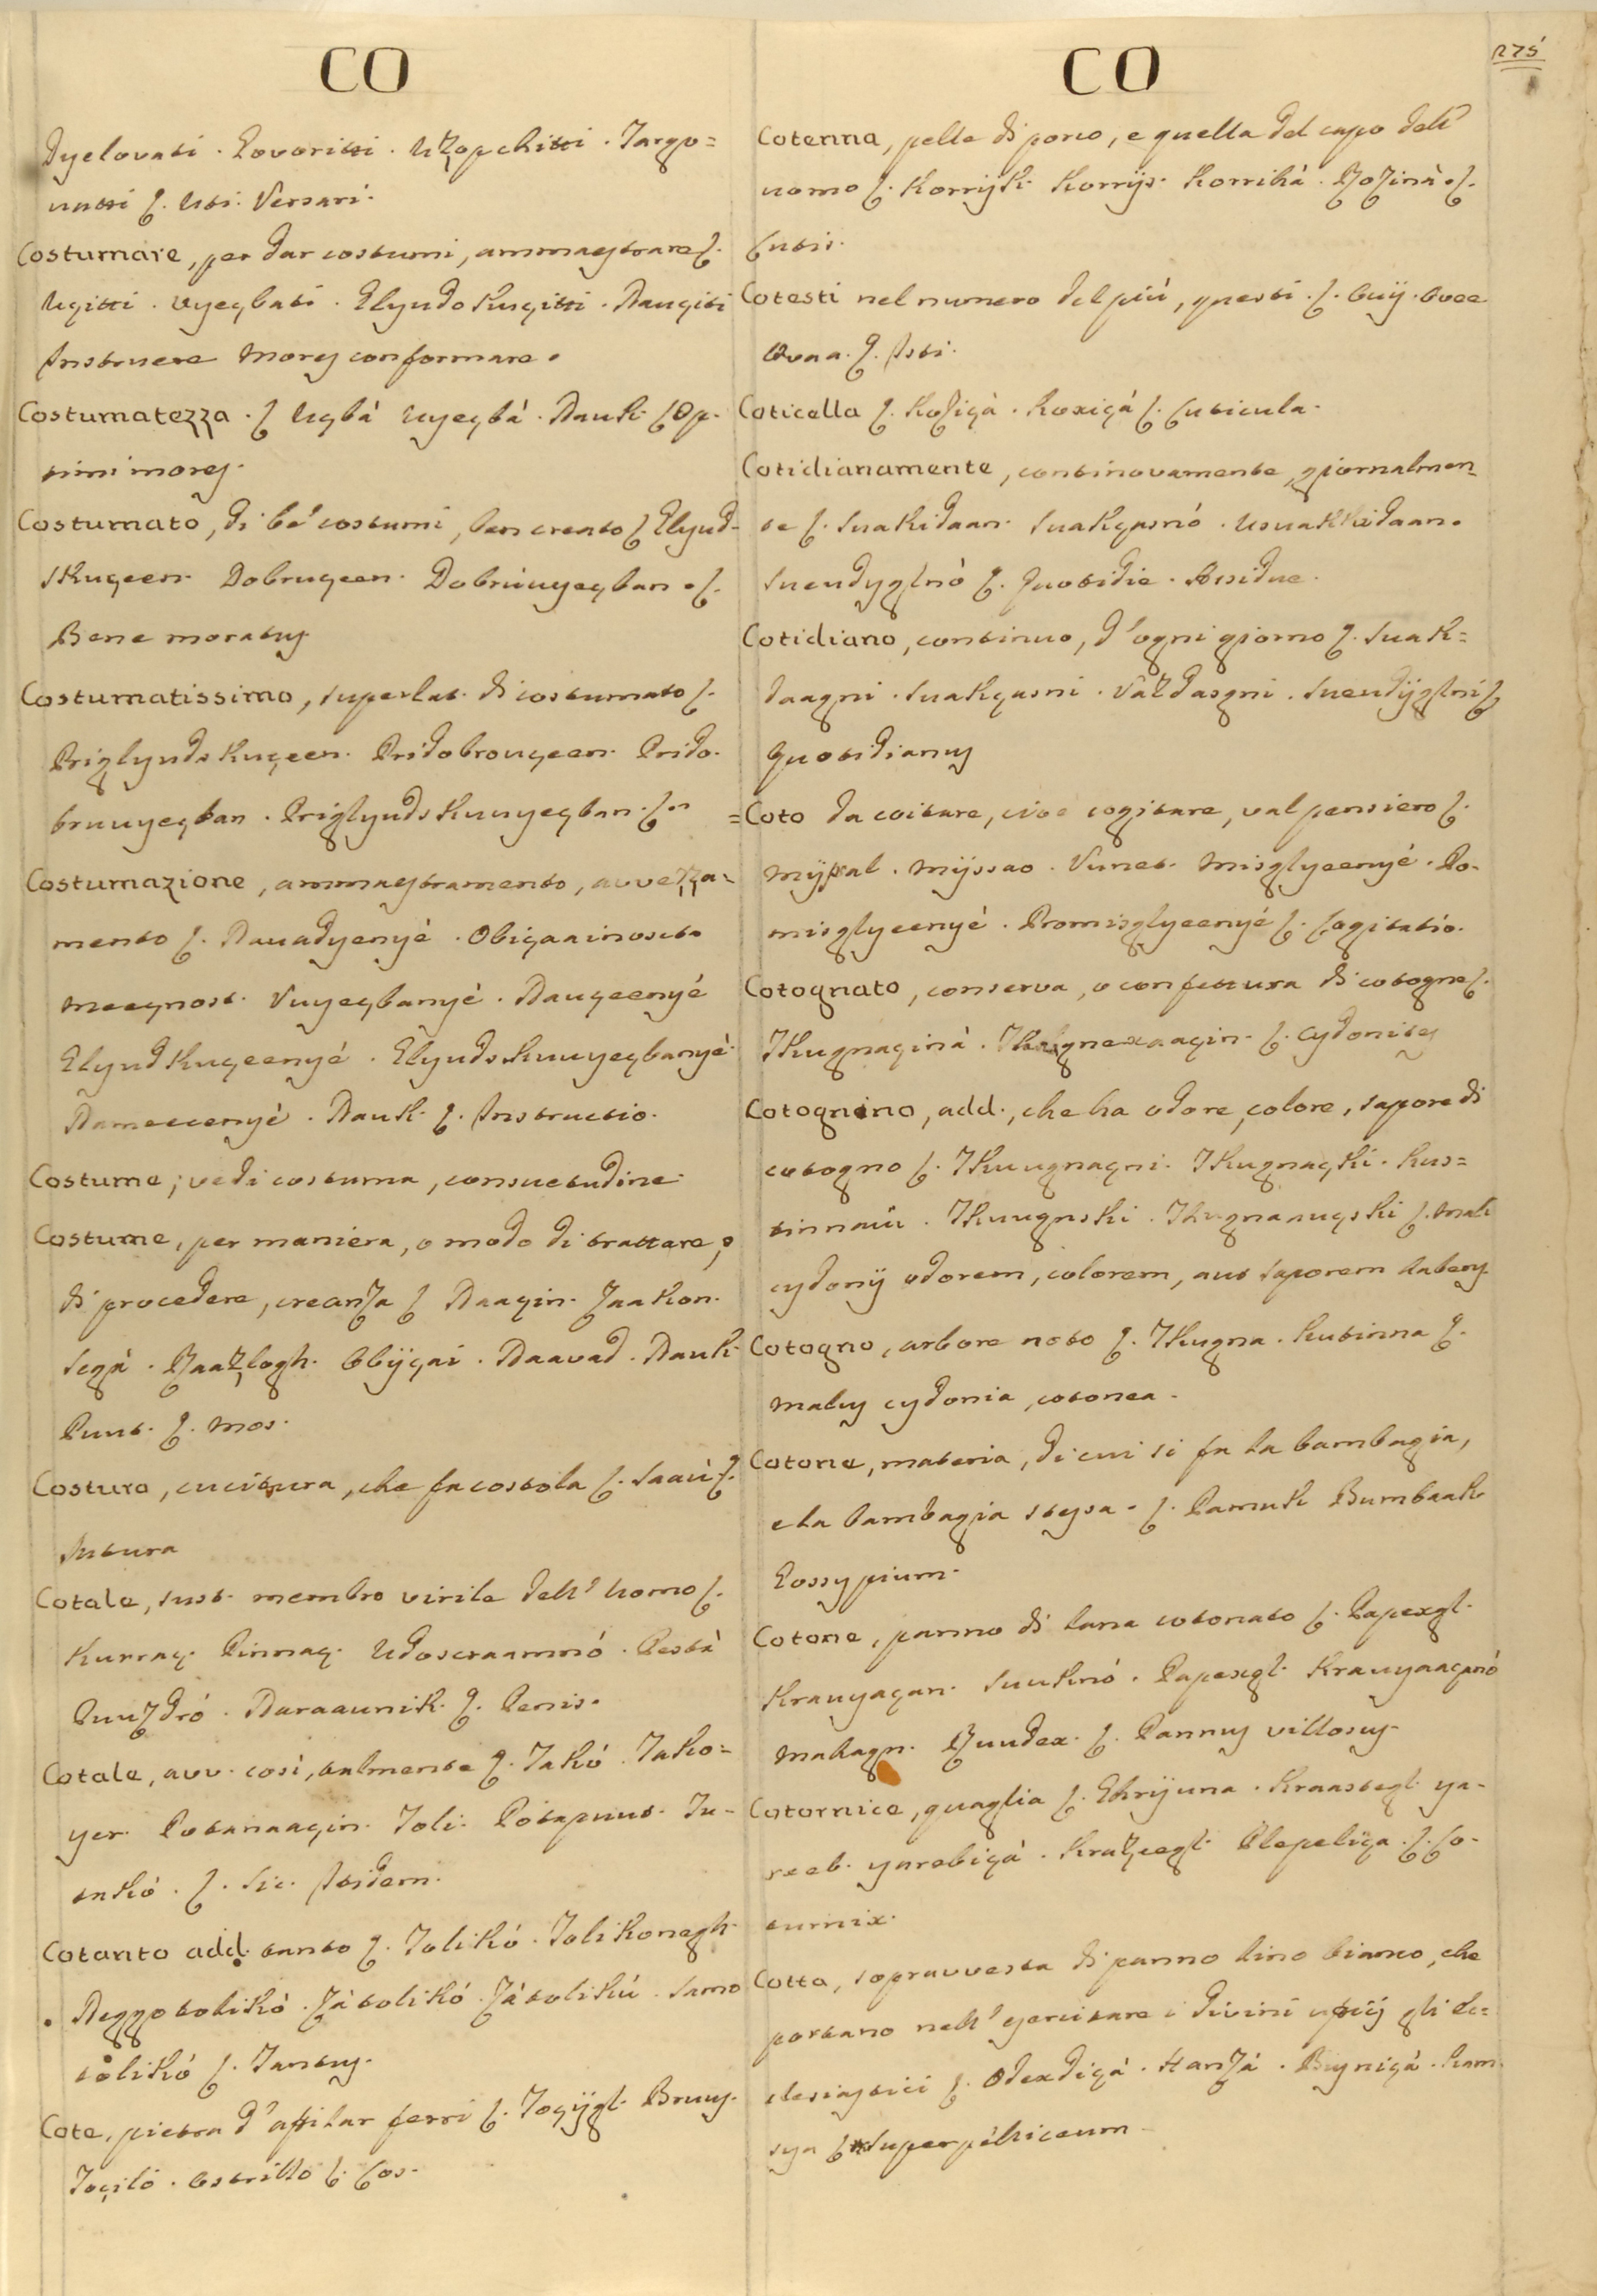 CO
Dyelovati. Govoritti. Uzopchitti. Targo=
vatti ſ. Uti. Versari.
Costumare, per dar costumi, ammaestrare ſ.
Uçitti. uyeçbati. Chyudoskuçitti. Nauçiti
Instruere mores conformare.
Costumatezza. ſ Uçbà uyeçbà. Nauk ſ Op-
timi mores.
Costumato, di be' costumi, ben creato ſ Chyud-
skuçeen. Dobruçeen. Dobrúuyeçban. ſ.
Bene moratus
Costumatissimo, superlat. di costumato ſ.
Prichyudskuçeen. Pridobrouçeen. Prido-
bruuyeçban. Prichyudskuuyeçban. ſ.
Costumazione, ammaestramento, avvezza=
mento ſ. Navadyenyè. Obiçaainost.
Meeçnost. Vuyeçbanyè. Nauçeenyè
Chyudskuçeenyè. Chyudskuuyeçbanyè.
Nameeenyè. Nauk. ſ. Instructio.
Costume, vedi costuma, consuetudine.
Costume, per maniera, o modo di trattare, o
di procedere, creanza ſ Naaçin. Zaakon.
Segà. Razlogh. Obÿçai. Naavad. Nauk
Puut. ſ. Mos.
Costura, cucitura, che fa costola ſ. Saaù ſ.
Sutura
Cotale, sust. membro virile dell' homo ſ.
Kurraç. Pinnaç. Udosraamnó. Pestà
Puuzdró. Naraaunik. ſ. Penis.
Cotale, avv. così, talmente ſ. Takó. Tako=
yer. Potanaaçin. Toli. Potapuut. Tu-
takó. ſ. Sic. Itidem.
Cotanto add. tanto ſ. Tolikó. Tolikonegh.
Neggotolikó. Zátolikó. Zátolikú. Samo
tolikó ſ. Tantus.
Cote, pietra d'affilar ferri ſ. Toçÿgl. Bruus.
Toçiló. Ostrilló ſ. Cos.
CO
275
Cotenna, pelle di porco, e quella del capo dell'
uomo ſ. Korrÿk. Korrÿs. Korrikà. Kozinà. ſ.
Cutis.
Cotesti nel numero del più, questi. ſ. Ouÿ. Ovee
Ovaa. ſ. Isti.
Coticella ſ. Koziçà. Koxiçà ſ. Cuticula.
Cotidianamente, continovamente, giornalmen-
te ſ. Suakidaan. Suakçasnó. Usuakkidaan.
Suendyglnò ſ. Quotidie. Assidue.
Cotidiano, continuo, d'ogni giorno ſ. Suak=
daagni. Suakçasni. Vazdasgni. Suendÿglni ſ
Quotidianus
=Coto da coitare, cioè cogitare, val pensiero ſ.
Mÿsal. Mÿssao. Vumet. Misglyeenyè. Po-
misglyeenyè. Promisglyeenyè ſ. Cogitatio.
Cotognato, conserva, o confettura di cotogne ſ.
Tkugnaçinà. ſ. Cydonites
Cotognino, add., che ha odore, colore, sapore di
cotogno ſ. Tkuugnaçni. Tkugnaçki. Kus=
tinnaiu. Tkuugnski. Tkugnaauçski ſ. Mali
cydonÿ odorem, colorem, aut saporem habens.
Cotogno, arbore noto ſ. Tkugna. Kutinna ſ.
malus cydonia, cotonea.
Cotone, materia, di cui si fa la bambagia,
e la bambagia stessa. ſ. Pamuk Bumbaak
Gossypium.
Cotone, panno di lana cotonato ſ. Papexgl.
Krauyaçan. Suuknó. Papexgl. Krauyaaçanó
Mahagn. Ruudex. ſ. Pannus villosus.
Cotornice, quaglia ſ. Chrÿuna. Kraastegl ya-
reeb. yarebiçà. Krazcegl. Plepeliça. ſ. Co-
turnix.
Cotta, sopravvesta di panno lino bianco, che
portano nell' esercitare i divini ufficÿ gli ec=
clesiastici ſ. Odexdiçà. Hanzà. Bisniçà. Kam.
sya ſ Superpelliceum.